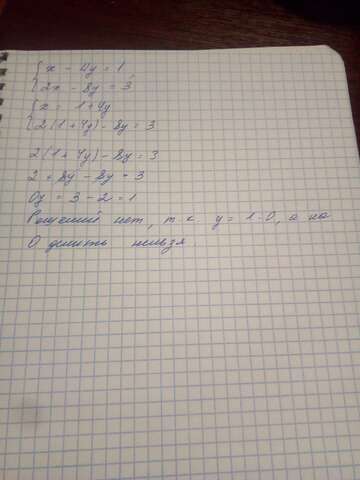 { x - 4y = 1,
{ 2x - 8y = 3
{ x = 1 + 4y
{ 2(1 + 4y) - 8y = 3
2(1 + 4y) - 8y = 3
2 + 8y - 8y = 3
0y = 3 - 2 = 1
Решений нет, т.к. y = 1:0, а на
0 делить нельзя